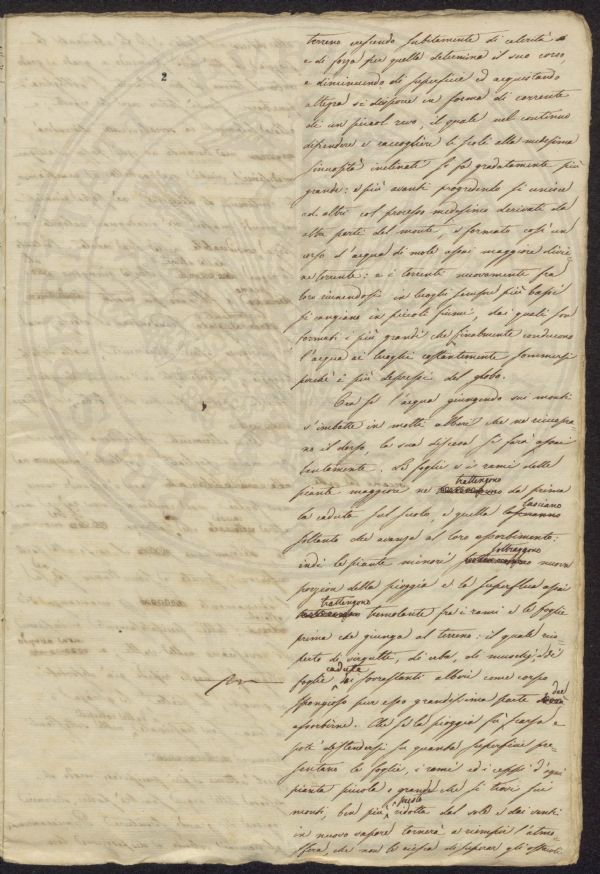 2
terreno crescendo subitamente di celerità
e di forza per quella determina il suo corso,
e diminuendo di superficie ed acquistando
altezza si dispone in forma di corrente
di un piccol rivo, il quale nel continuo
discendere e raccogliere le scoli alla medesima
sinuosità inclinati si fa gradatamente più
grande: e più avanti progredendo si unisce
ad altri col processo medesimo derivati da
altre parti del monte, e formato così un
corso d'acqua di mole assai maggiore divie-
ne torrente: e i torrenti nuovamente fra
loro riunendosi in luoghi sempre più bassi
si cangiano in piccoli fiumi, dai quali son
formati i più grandi che finalmente conducono
l'acqua ai luoghi costantemente sommersi
perchè i più depressi del globo.
Ora se l'acqua giungendo sui monti
s'imbatte in molti alberi che ne ricuopra-
no il dorso, la sua discesa si farà assai
lentamente. Le foglie e i rami delle
piante maggiori ne trattengono da prima
la caduta sul suolo, e quella lasciano
soltanto che avanza al loro assorbimento:
indi le piante minori sottraggono nuova
porzion della pioggia e la superflua assai
trattengono tremolante fra i rami e le foglie
prima che giunga al terreno: il quale rico-
perto di virgulti, di erba, di muschi, di
foglie cadute dai sovrastanti alberi come corpo
spongioso pur esso grandissima parte dee
assorbirne. Che se la pioggia fu scarsa e
potè distendersi su quanta superficie pre-
sentano le foglie, i rami ed i ceppi d'ogni
pianta piccola e grande che si trovi sui
monti, ben più presto ridotta dal sole e dai venti
in nuovo vapore tornerà a riempir l'atmo-
sfera, che non le riesca di superar gli ostacoli